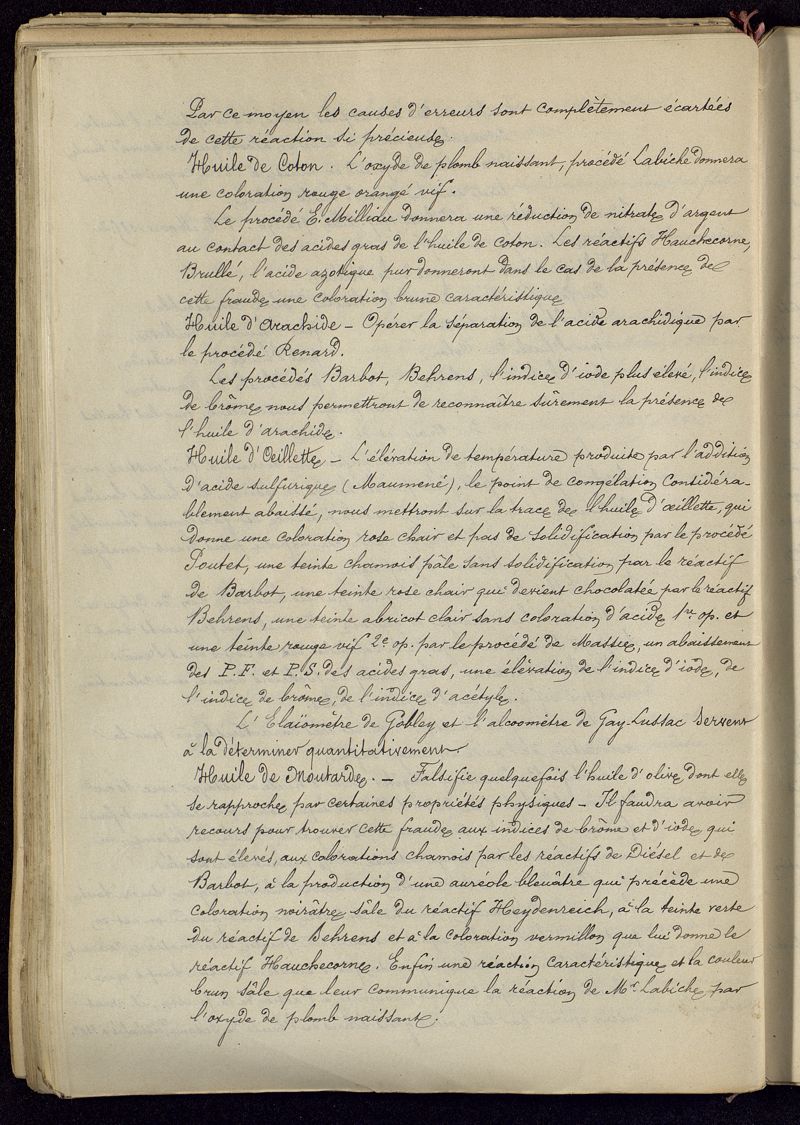 Par ce moyen les causes d'erreurs sont complètement écartées
de cette réaction si précieuse.
Huile de Coton. L'oxyde de plomb naissant, procédé Labiche donnera
une coloration rouge orangé vif.
Le procédé E. Milliau donnera une réduction de nitrate d'argent
au contact des acides gras de l'huile de Coton. Les réactifs Hauchecorne,
Brullé, l'acide azotique pur donneront dans le cas de la présence de
cette fraude une coloration brune caractéristique
Huile d'Arachide – Opérer la séparation de l'acide arachidique par
le procédé Renard.
Les procédés Barbot, Behrens, l'indice d'iode plus élevé, l'indice
de brôme nous permettront de reconnaître sûrement la présence de
l'huile d'arachide.
Huile d'Oeillette – L'élévation de température produite par l'addition
d'acide sulfurique (Maumené), le point de congélation considéra-
blement abaissé, nous mettront sur la trace de l'huile d'œillette, qui
donne une coloration rose chair et pas de solidification par le procédé
Poutet, une teinte chamois pâle sans solidification par le réactif
de Barbot, une teinte rose chair qui devient chocolatée par le réactif
Behrens, une teinte abricot clair sans coloration d'acide 1re op. et
une teinte rouge vif 2e op. par le procédé de Massie, un abaissement
des P.F. et P.S. des acides gras, une élévation de l'indice d'iode, de
l'indice de brôme, de l'indice d'acétyle.
L'Elaïomètre de Gobley et l'alcoomètre de Gay-Lussac servent
à la déterminer quantitativement.
Huile de Moutarde. – Falsifie quelquefois l'huile d'olive dont elle
se rapproche par certaines propriétés physiques – Il faudra avoir
recours pour trouver cette fraude aux indices de brôme et d'iode qui
sont élevés, aux colorations chamois par les réactifs de Diésel et de
Barbot, à la production d'une auréole bleuâtre qui précède une
coloration noirâtre sâle du réactif Heydenreich, à la teinte verte
du réactif de Behrens et à la coloration vermillon que lui donne le
réactif Hauchecorne. Enfin une réaction caractéristique et la couleur
brun sâle que leur communique la réaction de Mr Labiche par
l'oxyde de plomb naissant.